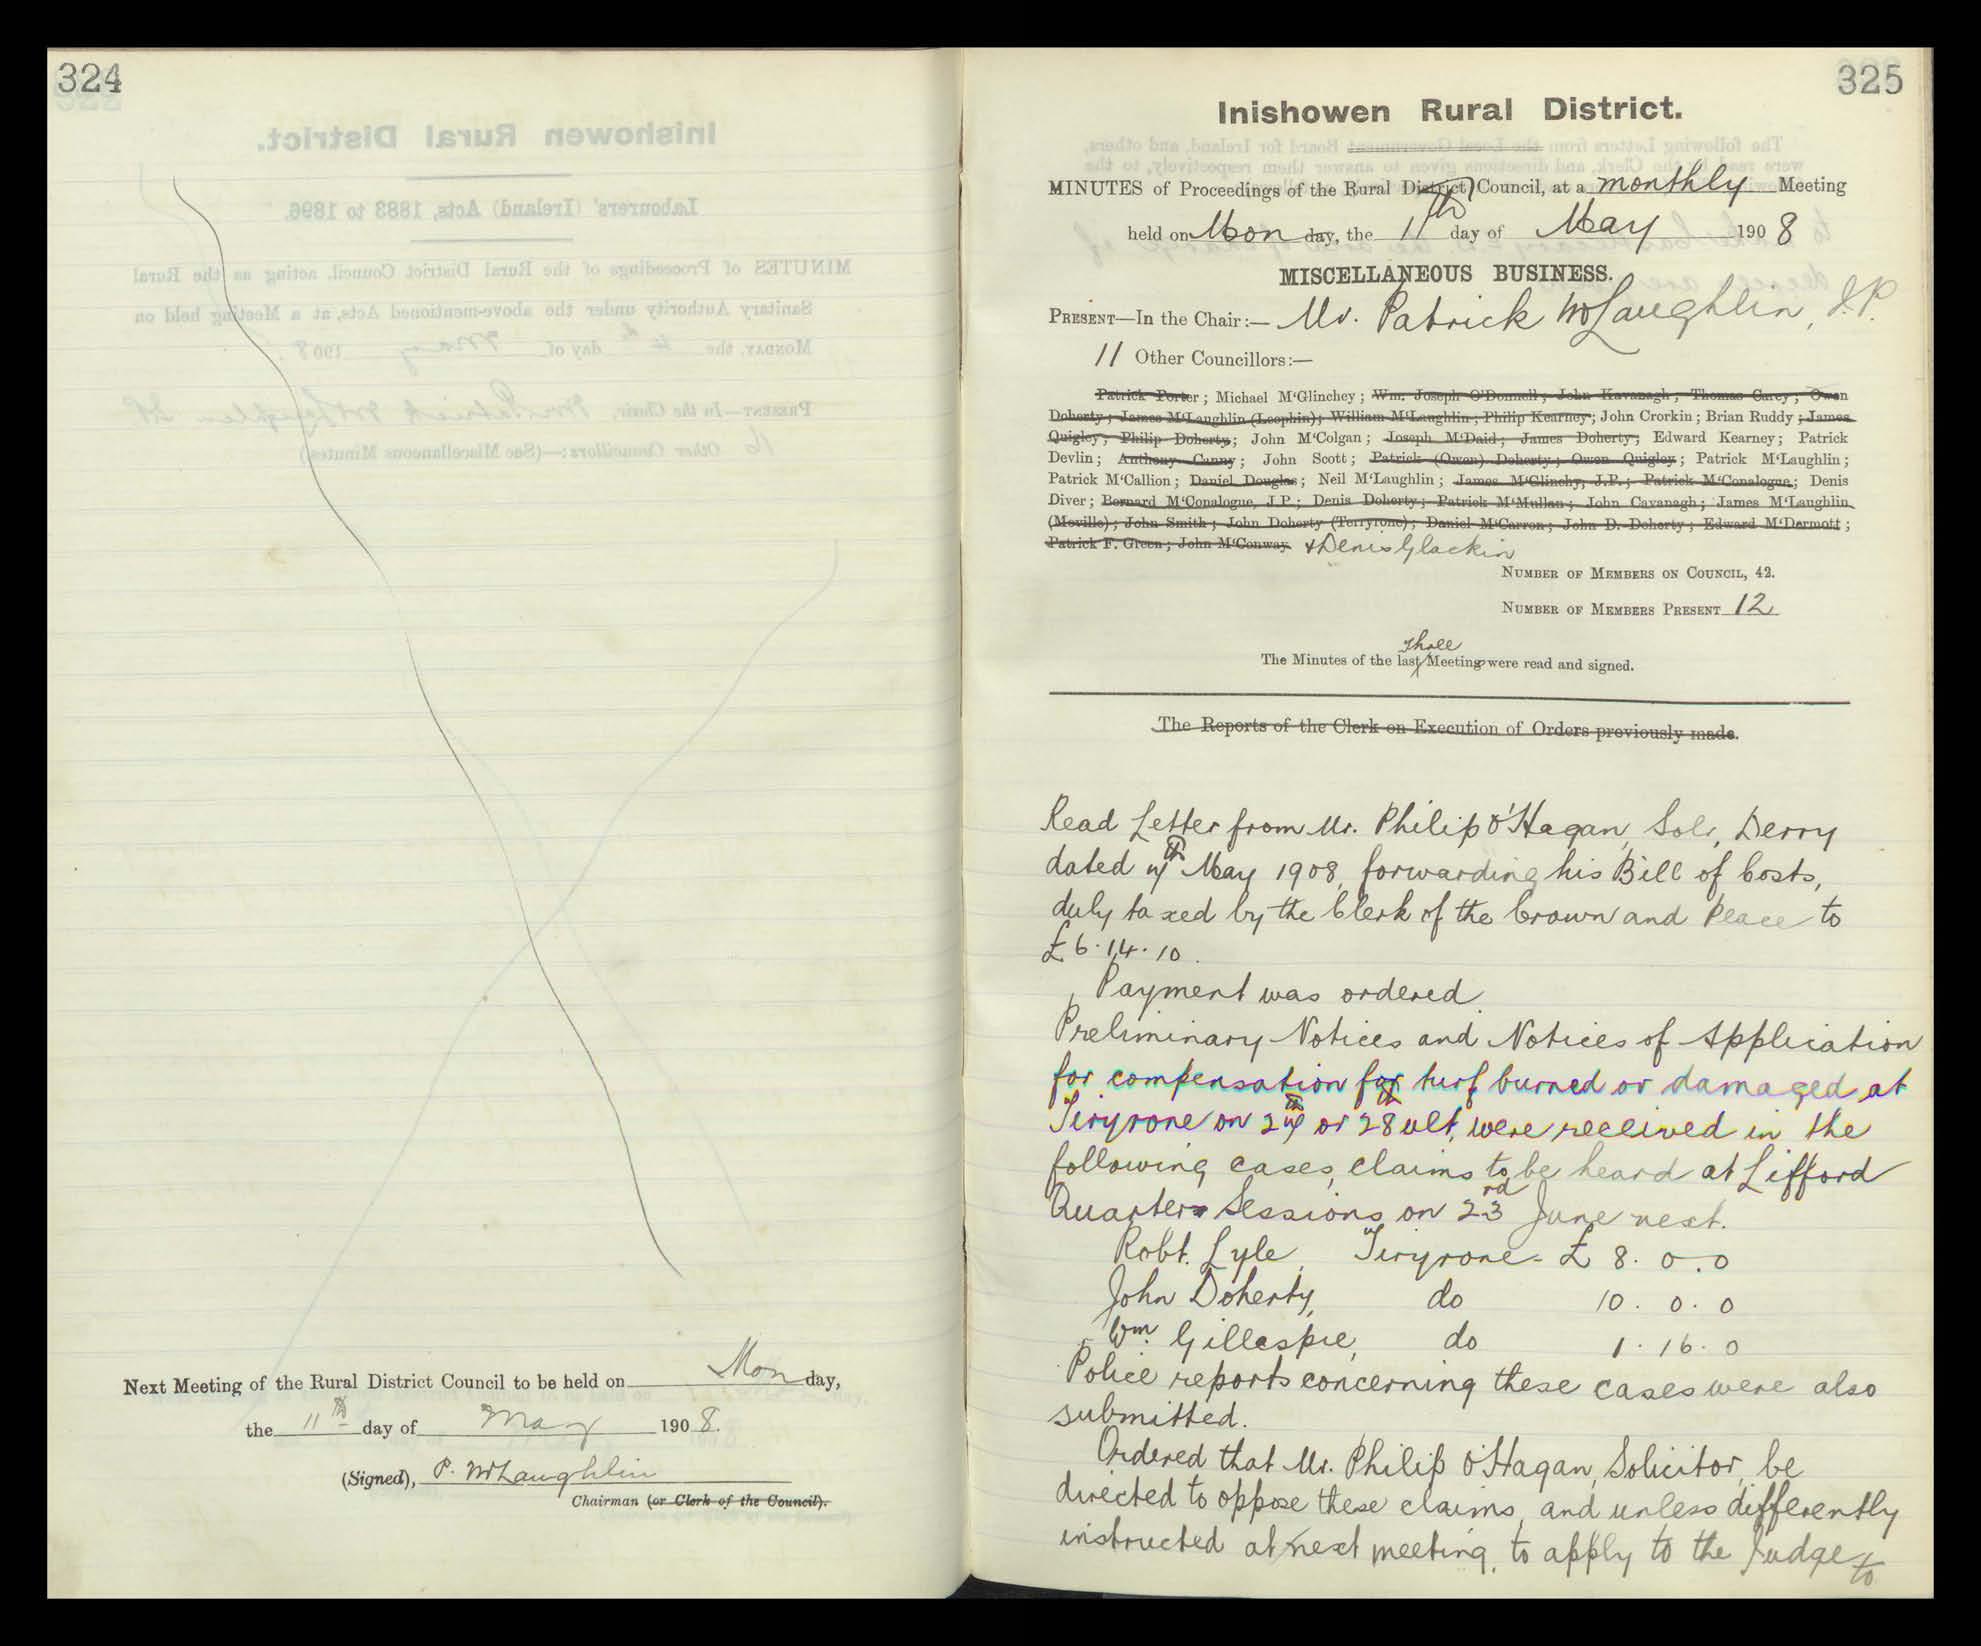 324
Next Meeting of the Rural District Council to be held on Mon day,
the 11th day of May 1908.
(Signed), P. McLaughlin
Chairman (or Clerk of the Council).
325
Inishowen Rural District.
MINUTES of Proceedings of the Rural District Council, at a monthly Meeting
held on Mon day, the 11th day of May 1908
MISCELLANEOUS BUSINESS.
PRESENT—In the Chair:— Mr. Patrick McLaughlin, J.P.
11 Other Councillors:—
Patrick Porter; Michael M'Glinchey; Wm. Joseph O'Donnell; John Kavanagh; Thomas Carey; Owen
Doherty; James M'Laughlin (Leophin); William M'Laughlin; Philip Kearney; John Crorkin; Brian Ruddy; James
Quigley; Philip Doherty; John M'Colgan; Joseph M'Daid; James Doherty; Edward Kearney; Patrick
Devlin; Anthony Canny; John Scott; Patrick (Owen) Doherty; Owen Quigley; Patrick M'Laughlin;
Patrick M'Callion; Daniel Douglas; Neil M'Laughlin; James M'Glinchy, J.P.; Patrick M'Conalogue; Denis
Diver; Bernard M'Conalogue, J.P.; Denis Doherty; Patrick M'Mullan; John Cavanagh; James M'Laughlin
(Moville); John Smith; John Doherty (Terryrone); Daniel M'Carron; John D. Doherty; Edward M'Dermott;
Patrick F. Green; John M'Conway. + Denis Glackin
NUMBER OF MEMBERS ON COUNCIL, 42.
NUMBER OF MEMBERS PRESENT 12
three
The Minutes of the last Meetings were read and signed.
The Reports of the Clerk on Execution of Orders previously made.
Read Letter from Mr. Philip O'Hagan, Solr, Derry
dated 7th May 1908, forwarding his Bill of Costs,
duly taxed by the Clerk of the Crown and Peace to
£6.14.10.
Payment was ordered
Preliminary Notices and Notices of Application
for compensation for turf burned or damaged at
Tiryrone on 27th or 28th ult, were received in the
following cases, claims to be heard at Lifford
Quarter Sessions on 23rd June next.
Robt. Lyle, Tiryrone - £ 8. 0. 0
John Doherty, do 10. 0. 0
Wm. Gillespie, do 1. 16. 0
Police reports concerning these cases were also
submitted.
Ordered that Mr. Philip O'Hagan, Solicitor, be
directed to oppose these claims, and unless differently
instructed at next meeting, to apply to the Judge to